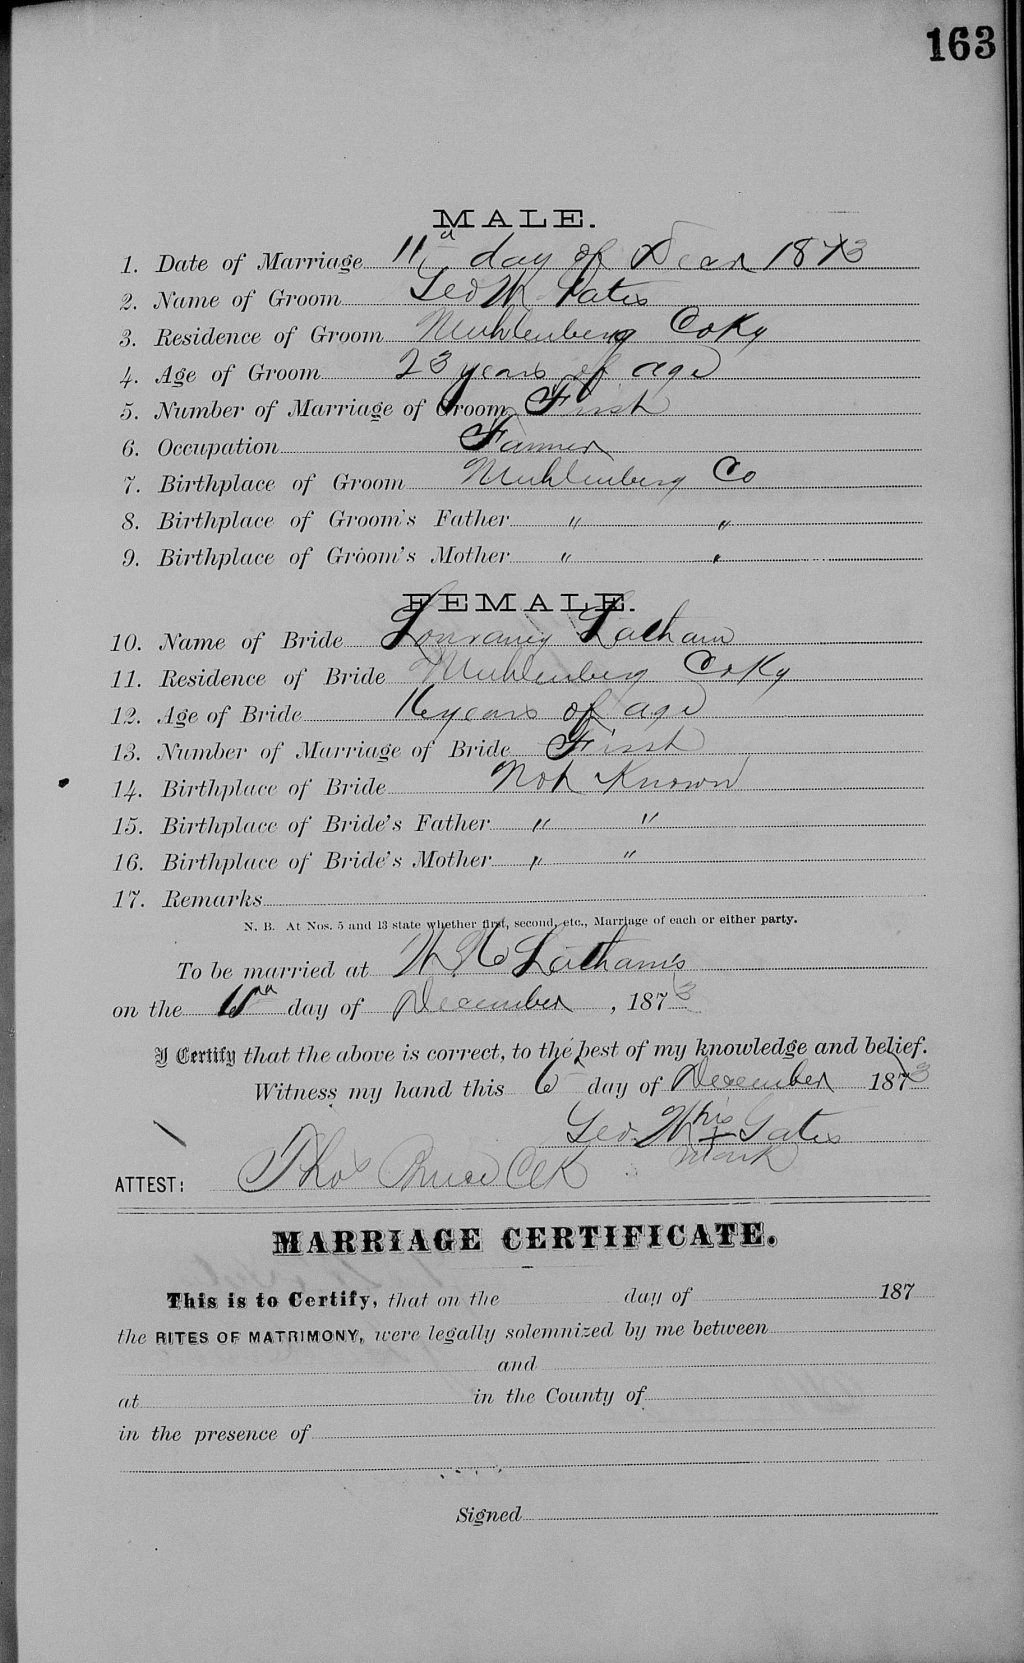 163
MALE.
1. Date of Marriage 11 day of Decr 1873
2. Name of Groom Geo W Gates
3. Residence of Groom Muhlenberg Co Ky
4. Age of Groom 23 years of age
5. Number of Marriage of Groom First
6. Occupation Farmer
7. Birthplace of Groom Muhlenberg Co
8. Birthplace of Groom's Father " "
9. Birthplace of Groom's Mother " "
FEMALE.
10. Name of Bride Louraney Latham
11. Residence of Bride Muhlenberg Co Ky
12. Age of Bride 16 years of age
13. Number of Marriage of Bride First
14. Birthplace of Bride Not Known
15. Birthplace of Bride's Father " "
16. Birthplace of Bride's Mother " "
17. Remarks
N. B. At Nos. 5 and 13 state whether first, second, etc., Marriage of each or either party.
To be married at Latham's
on the day of December, 1873
I Certify that the above is correct, to the best of my knowledge and belief.
Witness my hand this 6 day of December 1873
Geo. W his + mark Gates
ATTEST: Thos Bruce Clk
MARRIAGE CERTIFICATE.
This is to Certify, that on the day of 187
the RITES OF MATRIMONY, were legally solemnized by me between
and
at in the County of
in the presence of
Signed